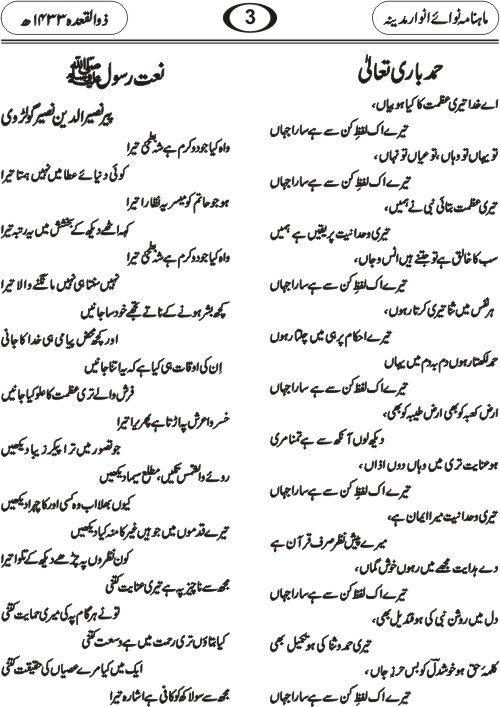 ماہنامہ نوائے انوار مدینہ
3
ذوالقعدہ ۱۴۳۳ھ
حمد باری تعالیٰ
اے خدا تیری عظمت کا کیا ہو بیاں،
تیرے اک لفظِ کن سے ہے سارا جہاں
تو یہاں تو وہاں، تو عیاں تو نہاں،
تیرے اک لفظِ کن سے ہے سارا جہاں
تیری عظمت بتائی نبی نے ہمیں،
تیری وحدانیت پر یقیں ہے ہمیں
سب کا خالق ہے تو جتنے ہیں انس و جاں،
تیرے اک لفظِ کن سے ہے سارا جہاں
ہر نفس میں ثنا تیری کرتا رہوں،
تیرے احکام پر ہی میں چلتا رہوں
حمد لکھتا رہوں دم بہ دم میں یہاں
تیرے اک لفظِ کن سے ہے سارا جہاں
ارضِ کعبہ کو بھی ارضِ طیبہ کو بھی،
دیکھ لوں آنکھ سے ہے تمنا مری
ہو عنایت تری میں وہاں دوں اذاں،
تیرے اک لفظِ کن سے ہے سارا جہاں
تیری وحدانیت میرا ایمان ہے،
میرے پیشِ نظر صرف قرآن ہے
دے ہدایت مجھے میں رہوں خوش گماں،
تیرے اک لفظِ کن سے ہے سارا جہاں
دل میں روشن نبی کی ہو قندیل بھی،
تیری حمد و ثنا کی ہو تکمیل بھی
کلمۂ حق ہو خوشدلؔ کو بس حرزِ جاں،
تیرے اک لفظِ کن سے ہے سارا جہاں
نعت رسول ﷺ
پیر نصیر الدین نصیر گولڑوی
واہ کیا جود و کرم ہے شہِ بطحیٰ تیرا
کوئی دنیائے عطا میں نہیں ہمتا تیرا
ہو جو حاتم کو میسر یہ نظارا تیرا
کہہ اٹھے دیکھ کے بخشش میں یہ رتبہ تیرا
واہ کیا جود و کرم ہے شہِ بطحیٰ تیرا
نہیں سنتا ہی نہیں مانگنے والا تیرا
کچھ بشر ہونے کے ناتے تجھے خود سا جانیں
اور کچھ محض پیامی ہی خدا کا جانی
اِن کی اوقات ہی کیا ہے کہ یہ اتنا جانیں
فرش والے تری عظمت کا علو کیا جانیں
خسروا عرش پہ اڑتا ہے پھریرا تیرا
جو تصور میں ترا پیکرِ زیبا دیکھیں
روئے والشمس تکیں، مطلعِ سیما دیکھیں
کیوں بھلا اب وہ کسی اور کا چہرا دیکھیں
تیرے قدموں میں جو ہیں غیر کا منہ کیا دیکھیں
کون نظروں پہ چڑھے دیکھ کے تلوا تیرا
مجھ سے ناچیز پہ ہے تیری عنایت کتنی
تو نے ہر گام پہ کی میری حمایت کتنی
کیا بتاؤں تری رحمت میں ہے وسعت کتنی
ایک میں کیا مرے عصیاں کی حقیقت کتنی
مجھ سے سو لاکھ کو کافی ہے اشارہ تیرا